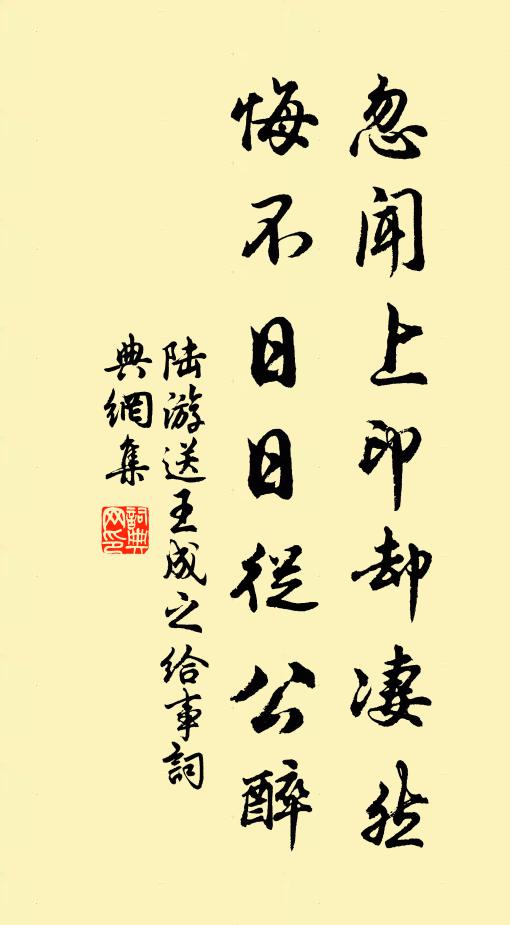 忽闻上印却凄然
悔不日日從公醉
陆游送王成之给事詞
典網集
詞典网印